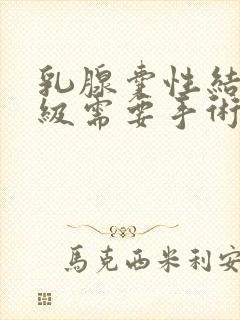 乳腺囊性結
級需要手術
馬克西米利安